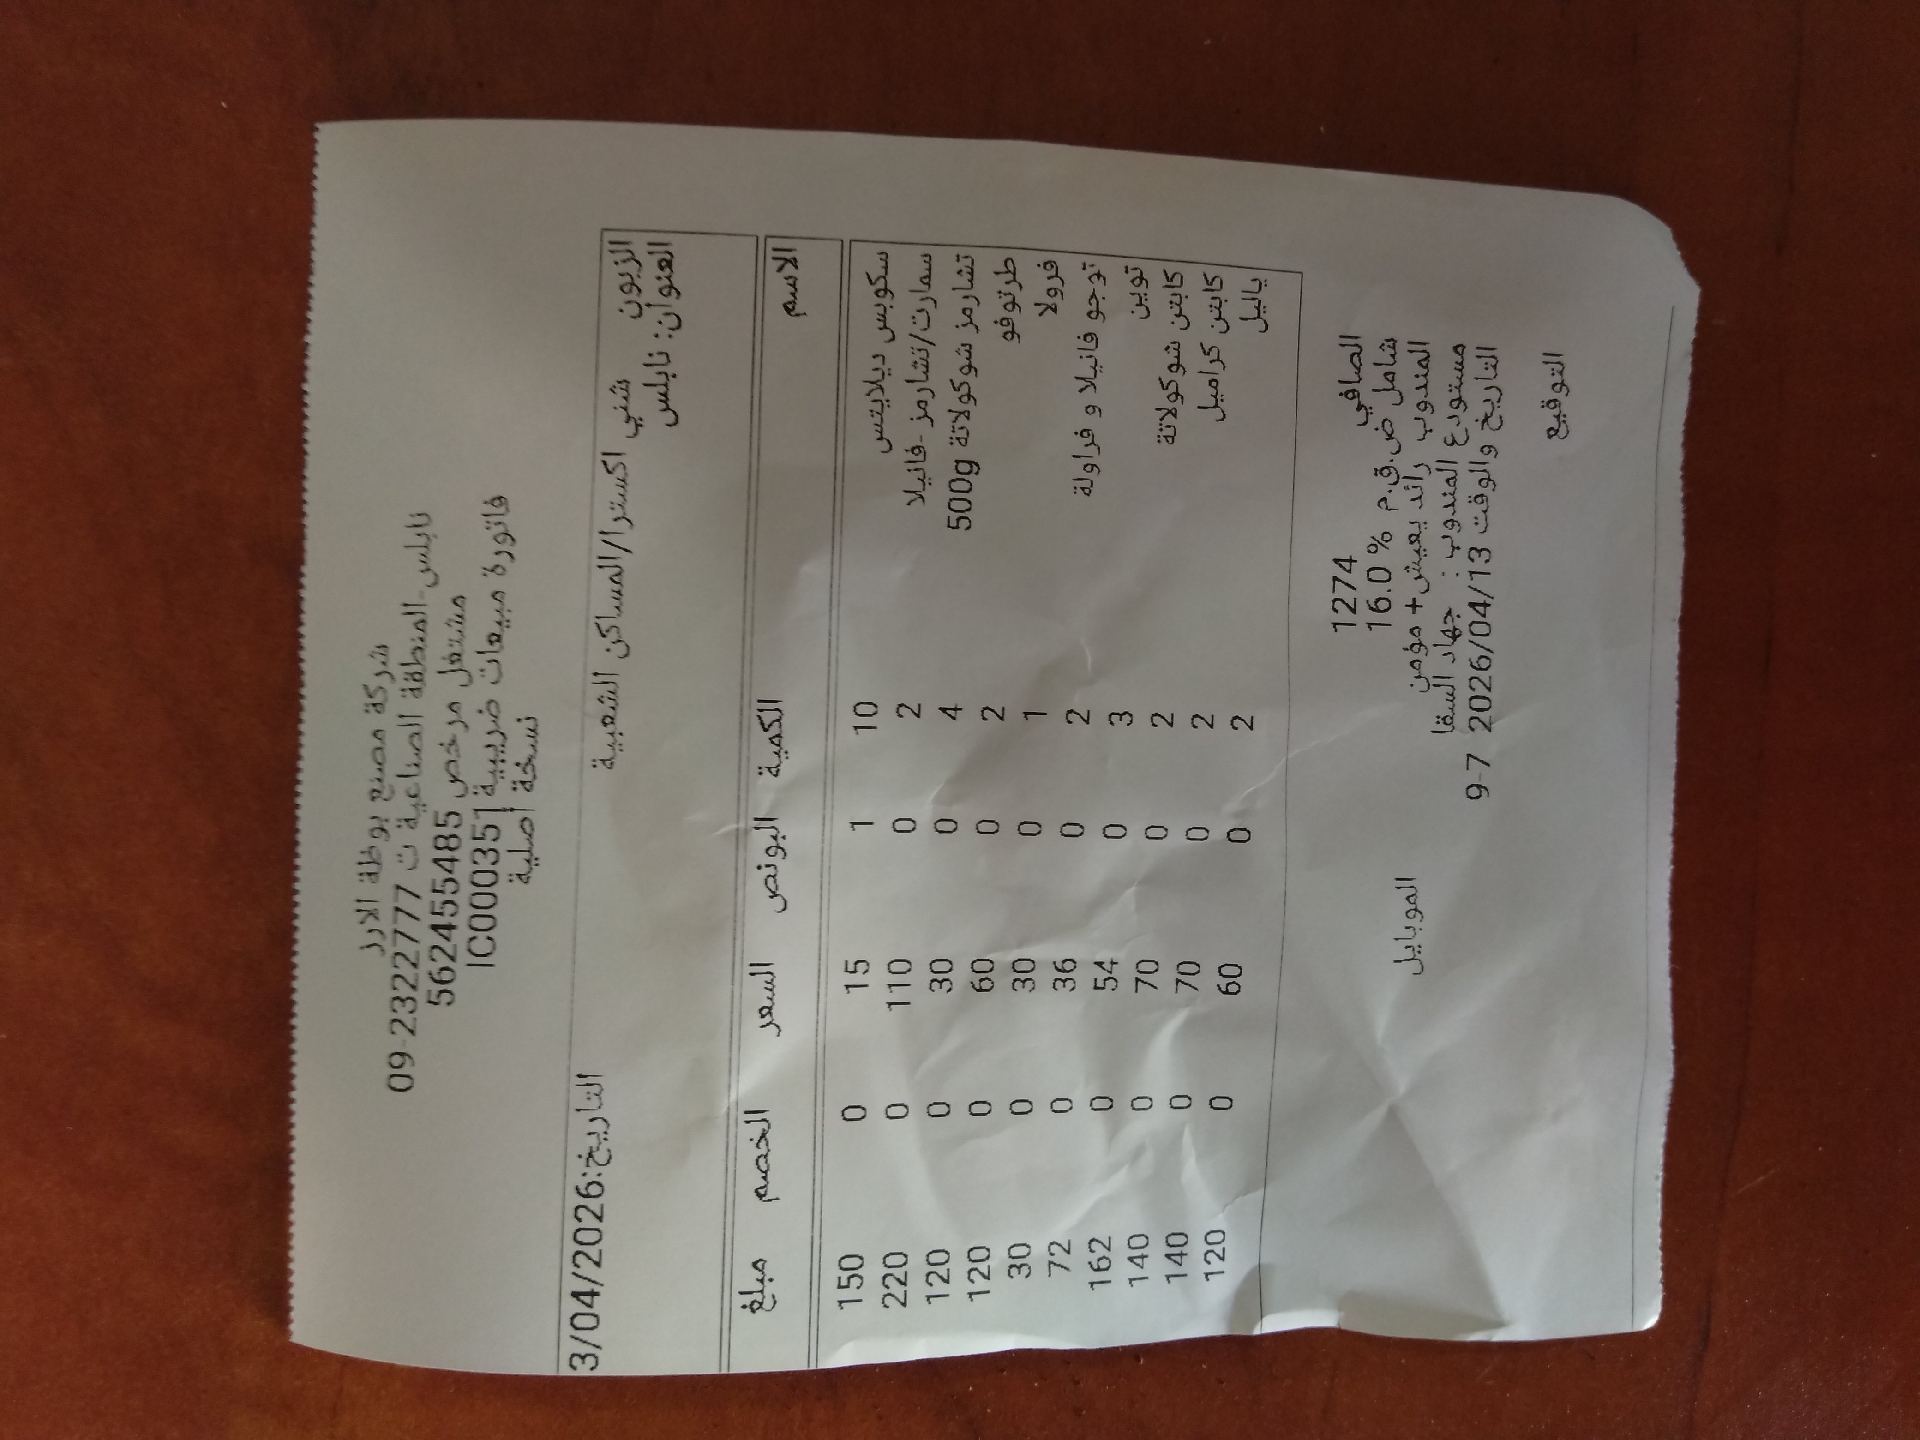 شركة مصنع بوظة الارز
نابلس-المنطقة الصناعية ت 09-2322777
مشتغل مرخص 562455485
فاتورة مبيعات ضريبية IC000351
نسخة أصلية
الزبون شني اكسترا/المساكن الشعبية التاريخ:3/04/2026
العنوان: نابلس
الاسم الكمية البونص السعر الخصم مبلغ
سكوبس ديلايتس 10 1 15 0 150
سمارت/تشارمز -فانيلا 2 0 110 0 220
تشارمز شوكولاتة 500g 4 0 30 0 120
طرتوفو 2 0 60 0 120
فرولا 1 0 30 0 30
توجو فانيلا و فراولة 2 0 36 0 72
توين 3 0 54 0 162
كابتن شوكولاتة 2 0 70 0 140
كابتن كراميل 2 0 70 0 140
ياليل 2 0 60 0 120
الصافي 1274
شامل ض.ق.م % 16.0
المندوب رائد يعيش+ مؤمن الموبايل
مستودع المندوب : جهاد السقا
التاريخ والوقت 2026/04/13 9-7
التوقيع